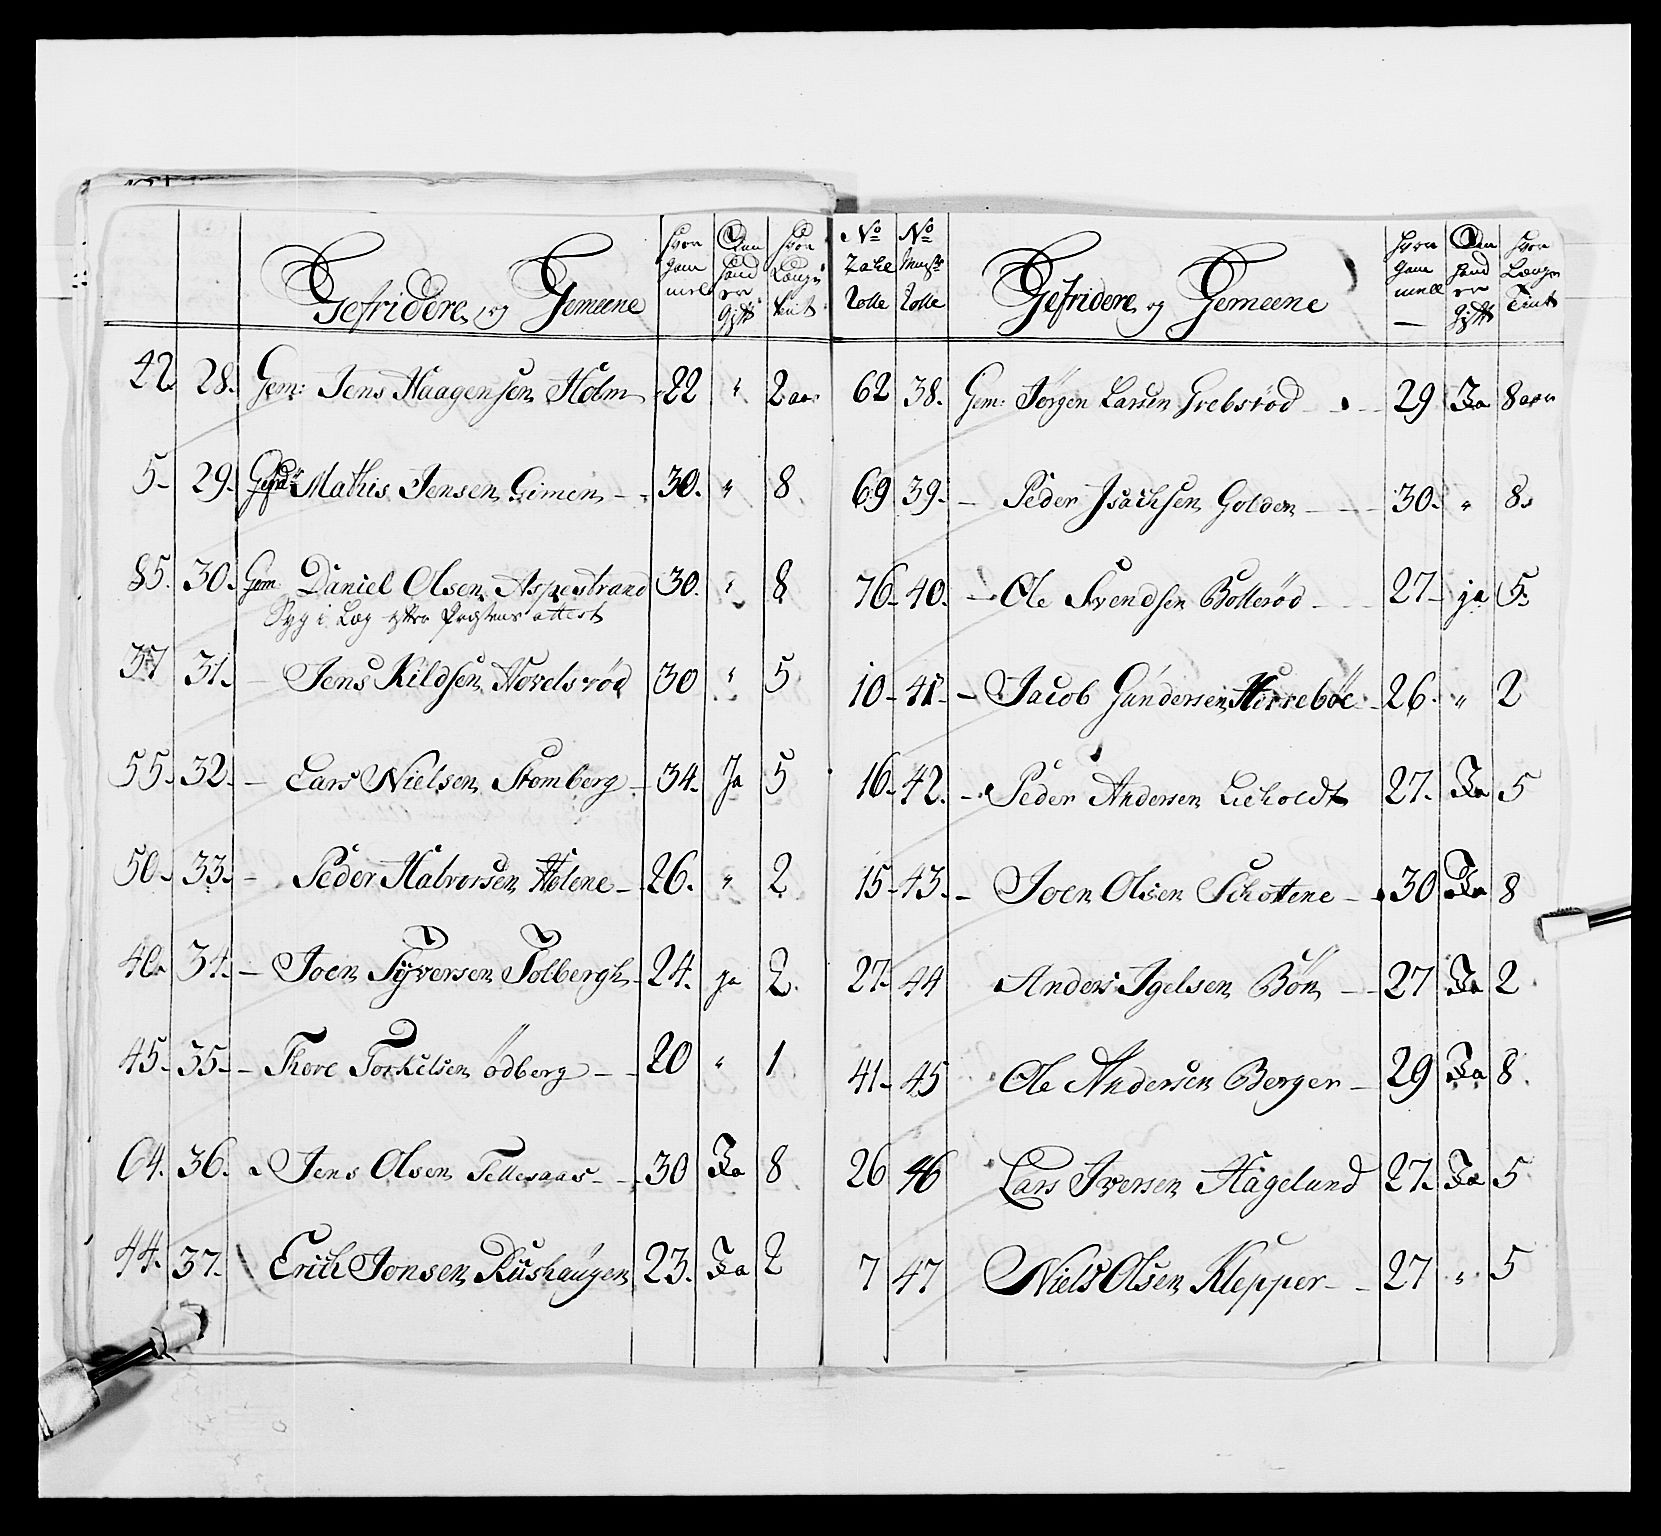 Gefridere og Gemeene Hvor gam mell Om hand er Gift Hvor Længe tient
42. 28. Gem: Jens Haagensen Holm 22 " 2 aar
5- 29. Gefrid: Mathis Jensen Gimen - 30. " 8
85. 30. Gem: Daniel Olsen Aspestrand 30. " 8
Syg i Læg efter Præstens attest
37 31. - Jens Kildsen Hovelsrød 30 " 5
55. 32. - Lars Nielsen Stomberg - 34. Ja 5
50. 33. - Peder Halvorsen Holene - 26. " 2
40. 34. - Joen Syversen Solbergh - 24. ja 2.
45- 35- - Thore Torkelsen Ödberg - - 20 " 1
64. 36. Jens Olsen Tellesaas - - 30 Ja 8
44. 37. Erich Jonsen Rüshaugen 23. Ja 2
No Zahl Rolle No Munst: Rolle Gefridere og Gemeene Hvor gam mell Om hand er Gift Hvor Længe tient
62 38. Gem: Jørgen Larsen Grebsrød - - 29 Ja 8 aar
69 39. - Peder Isachsen Golden - - - 30. " 8.
76. 40. - Ole Svendsen Bollerød - - 27- ja 5.
10- 41- - Jacob Gundersen Herrebøe - 26. " 2
16- 42. - Peder Andersen Lieholdt 27. Ja 5
15- 43. - Joen Olsen Schottene - 30 Ja 8
27. 44 Anders Igelsen Bøn - - 27 Ja 2
41- 45 Ole Andersen Berger - 29 Ja 8.
26 46 Lars Iversen Hagelund 27. Ja 5
7 47 Niels Olsen Klepper - - 27 " 5